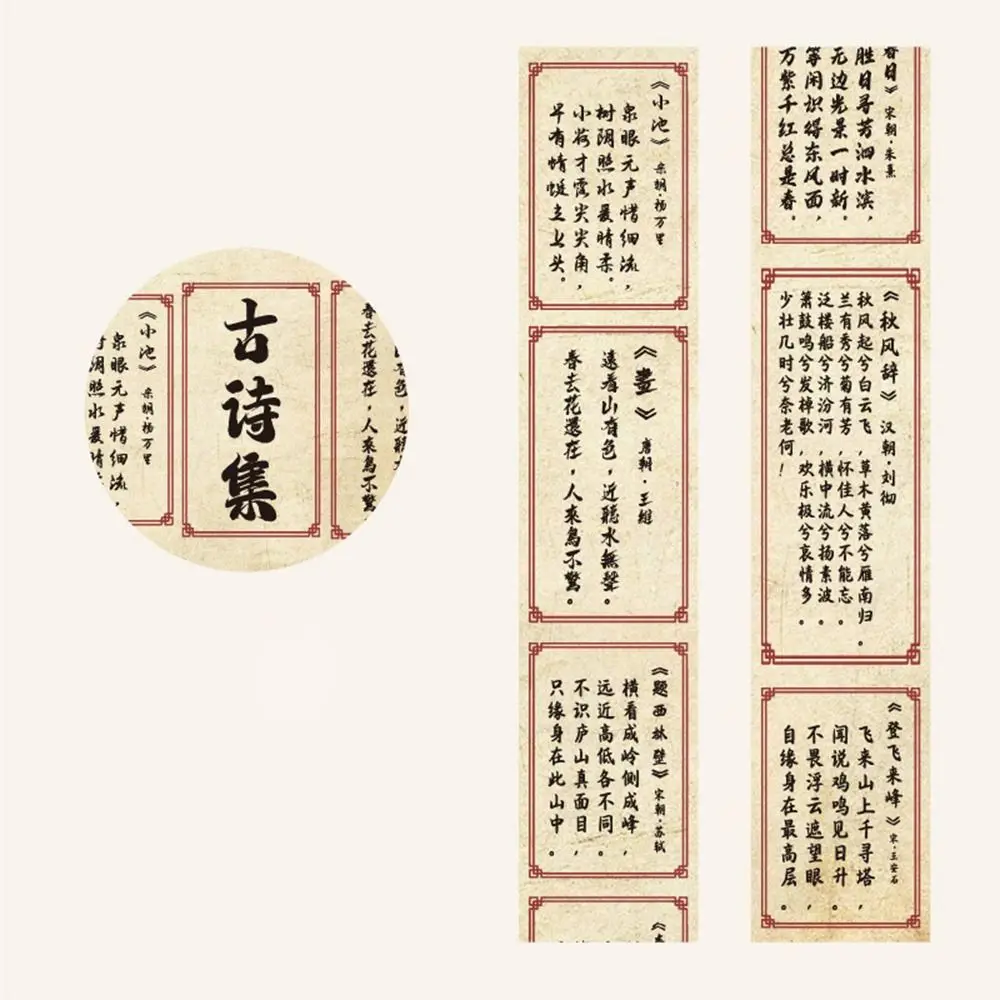 《小池》宋朝杨万里
泉眼无声惜细流,
阴照水爱晴
古诗集
有色,近聽
春去花還在,人來鳥不驚
《小池》宋朝·杨万里
泉眼无声惜细流,
树阴照水爱晴柔。
小荷才露尖尖角,
早有蜻蜓立上头。
《畫》唐朝·王維
遠看山有色,近聽水無聲。
春去花還在,人來鳥不驚。
《题西林壁》宋朝·苏轼
横看成岭侧成峰,
远近高低各不同。
不识庐山真面目,
只缘身在此山中。
春日》宋朝·朱熹
胜日寻芳泗水滨,
无边光景一时新。
等闲识得东风面,
万紫千红总是春。
《秋风辞》汉朝·刘彻
秋风起兮白云飞,草木黄落兮雁南归。
兰有秀兮菊有芳,怀佳人兮不能忘。
泛楼船兮济汾河,横中流兮扬素波。
箫鼓鸣兮发棹歌,欢乐极兮哀情多。
少壮几时兮奈老何!
《登飞来峰》宋·王安石
飞来山上千寻塔,
闻说鸡鸣见日升。
不畏浮云遮望眼,
自缘身在最高层。